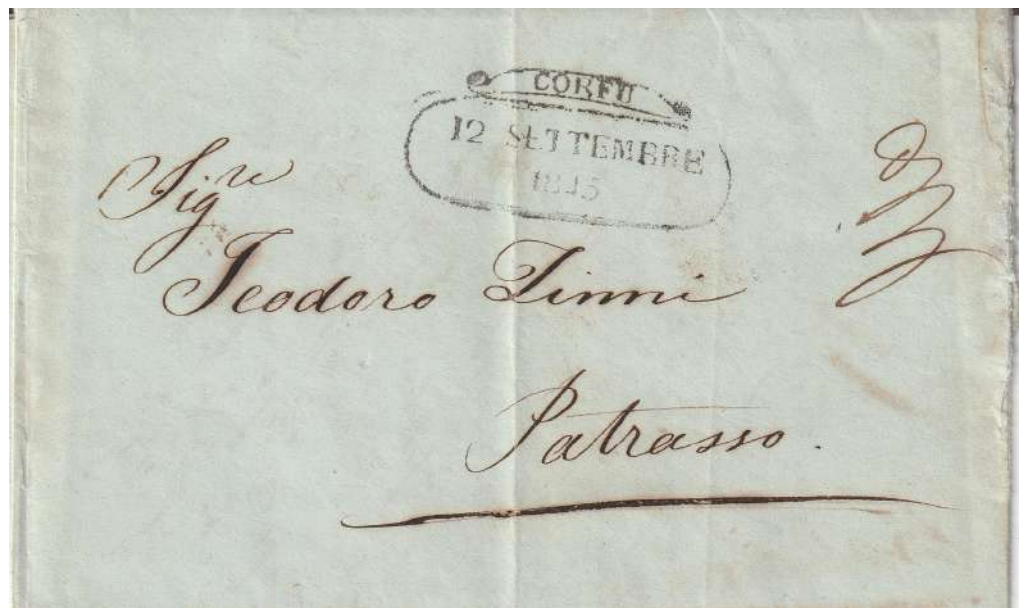 CORFU
12 SETTEMBRE
1845
Sig.re
Teodoro Zinni
Patrasso.